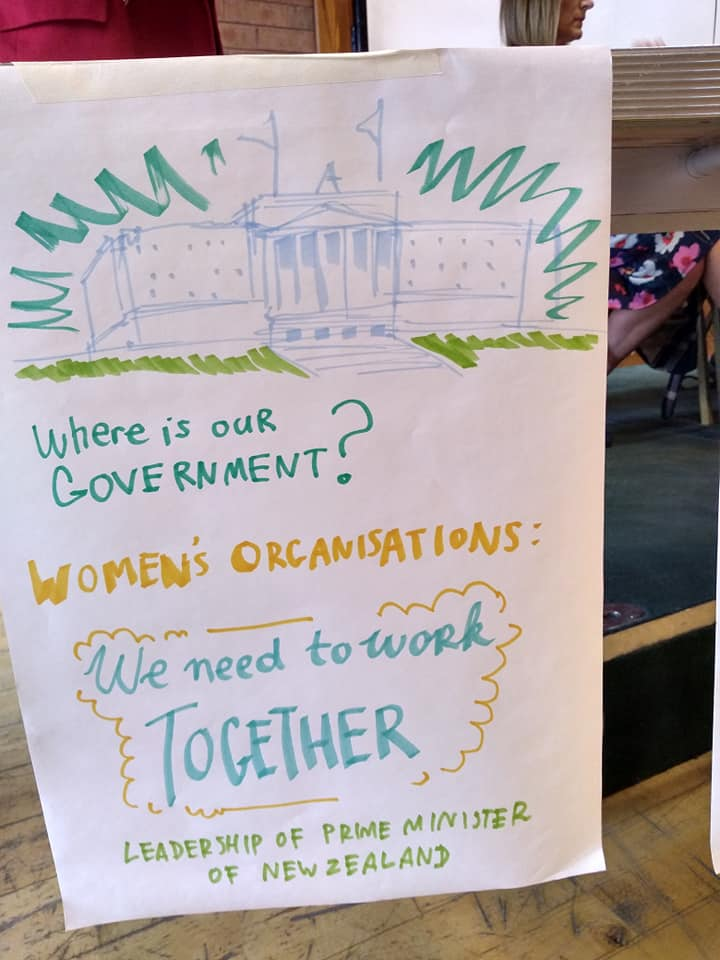 Where is ouR
GOVERNMENT?
WOMEN'S ORGANISATIONS:
We need to work
TOGETHER
LEADERSHIP OF PRIME MINISTER
OF NEW ZEALAND